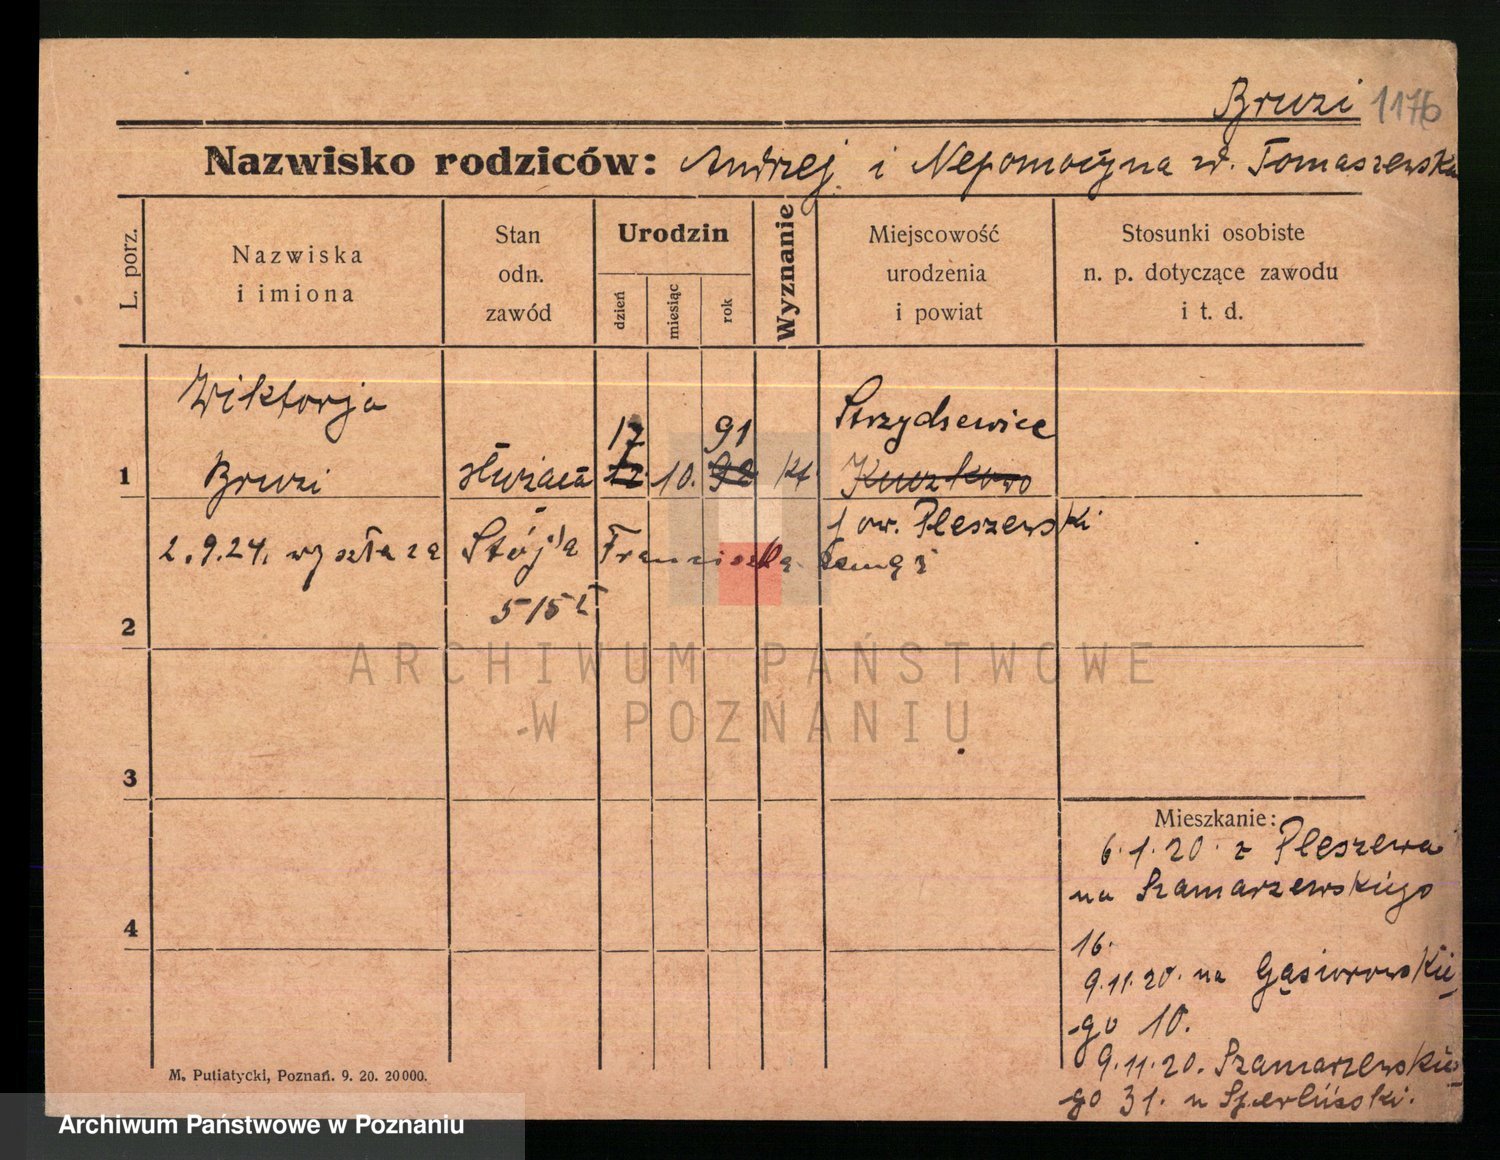 Bruzi 1176
Nazwisko rodziców: Andrzej i Nepomocyna z d. Tomaszewska
L. porz.
Nazwiska
i imiona
Stan
odn.
zawód
Urodzin
dzień
miesiąc
rok
Wyznanie
Miejscowość
urodzenia
i powiat
Stosunki osobiste
n. p. dotyczące zawodu
i t. d.
Wiktorja
Bruzi
służąca
17
12.
10.
91
92
kt.
Strzydzewice
Kuczkowo
pow. Pleszewski
1
2.9.24. wyszła za Stój'a Franciszka
515
2
3
4
Mieszkanie:
6.1.20. z Pleszewa
na Szamarzewskiego
16.
9.11.20. na Gąsiorowskie
go 10.
9.11.20. Szamarzewskie
go 31. u
M. Putiatycki, Poznań. 9. 20. 20000.
ARCHIWUM PAŃSTWOWE
W POZNANIU
Archiwum Państwowe w Poznaniu